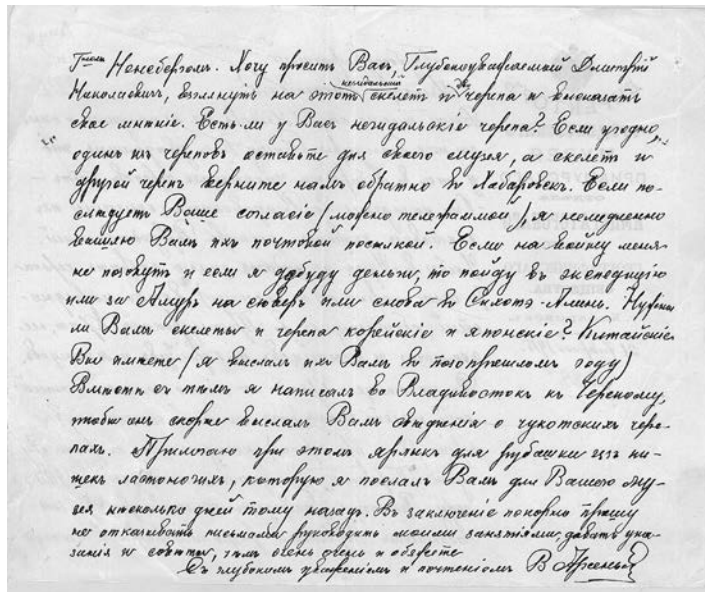 Г-номъ Ненебергомъ. Хочу просить Васъ, Глубокоуважаемый Дмитрій
Николаевичъ, взглянуть на этотъ негидальскій скелетъ и два черепа и высказать
свое мнѣніе. Есть-ли у Васъ негидальскіе черепа? Если угодно,
одинъ изъ череповъ оставьте для своего музея, а скелетъ и
другой черепъ верните намъ обратно въ Хабаровскъ. Если по-
слѣдуетъ Ваше согласіе (можно телеграммой), я немедленно
вышлю Вамъ ихъ почтовой посылкой. Если на войну меня
не позовутъ и если я добуду деньги, то пойду въ экспедицію
или за Амуръ на сѣверъ или снова въ Сихотэ-Алинь. Нужны
ли Вамъ скелеты и черепа корейскіе и японскіе? Китайскіе
Вы имѣете (я выслалъ ихъ Вамъ въ позапрошломъ году)
Вмѣстѣ съ тѣмъ я написалъ во Владивостокъ къ
чтобы онъ скорѣе выслалъ Вамъ свѣдѣнія о чукотскихъ чере-
пахъ. Прилагаю при этомъ ярлыкъ для рубашки изъ ки-
шекъ ластоногихъ, которую я послалъ Вамъ для Вашего му-
зея нѣсколько дней тому назадъ. Въ заключеніе покорно прошу
не отказывать письмами руководить моими занятіями, давать ука-
занія и совѣты, чѣмъ очень очень и обяжете
Съ глубокимъ уваженіемъ и почтеніемъ В Арсеньев